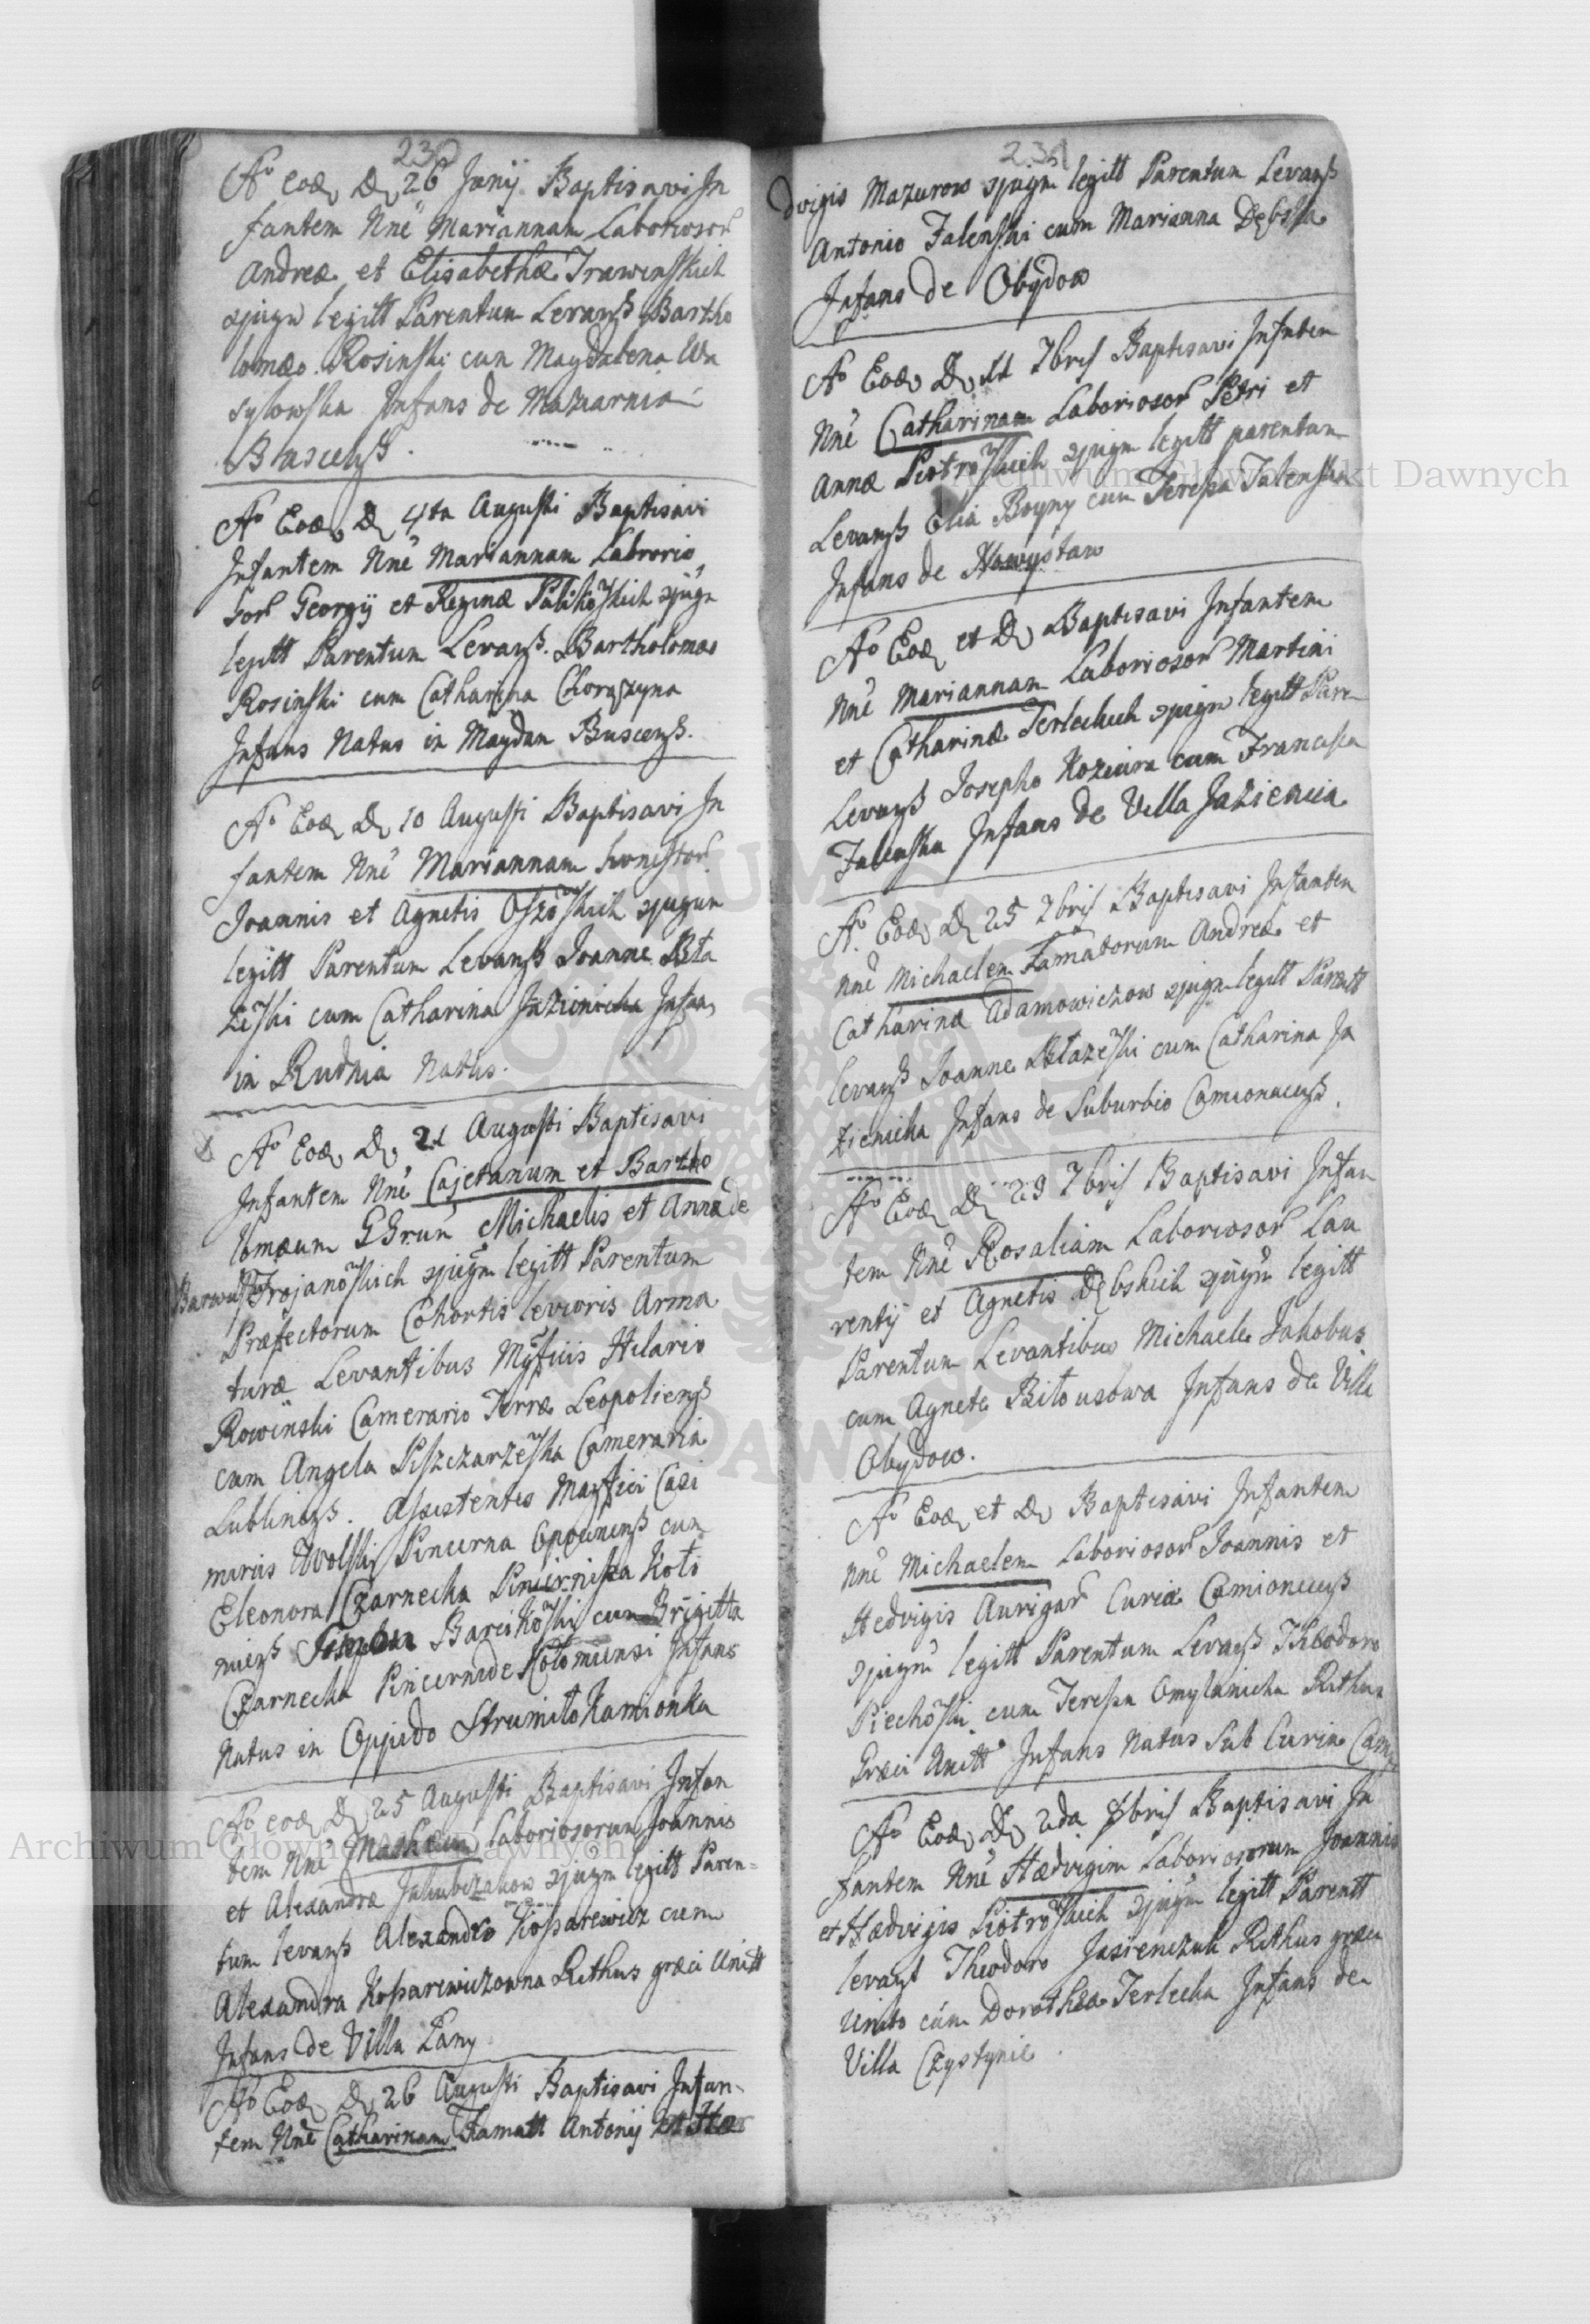 230
Aº eod D 26 Junij Baptisavi In
fantem Nnē Mariannam Laborioso℞
Andreæ et Elisabethæ Trawinskich
ɔjugu legitt Parentum Levanß Bartho
lomæo Rosinski cum Magdalena Wa
sylowska Infans de Maziarnia
Buscenß.
Aº Eod D 4ta Augusti Baptisavi
Infantem Nnē Mariannam Laborio
so℞ Georgij et Reginæ Palikoʷskich ɔjugu
legitt Parentum Levanß. Bartholomæo
Rosinski cum Catharina Chorążyna
Infans Natus in Maydan Buscenß.
Aº Eod D 10 Augusti Baptisavi In
fantem Nnē Mariannam honesto℞
Joannis et Agnetis Oszoʷskich ɔjugum
legitt Parentum Levanß Joanne Bła
żeʷski cum Catharina Jazienicka Infans
in Rudnia Natus.
Aº Eod D 21 Augusti Baptisavi
Infantem Nnē Cajetanum et Bartho
lomæum GGrum Michaelis et Annæ de
Trojanoʷskich ɔjugm legitt Parentum
Præfectorum Cohortis levioris Arma
turæ Levantibus Mgficiis Hilario
Rowinski Camerario Terræ Leopolienß
cum Angela Piszczarzeʷska Cameraria
Lublinenß. Assistentes Magfici Casi
mirus Wolski Pincerna Opocnenß cum
Eleonora Czarnecka Pincernissa Koło
mienß Barcikoʷski cum Brigitta
Czarnecka Pincernide Kołomiensi Infans
Natus in Oppido Strumiło Kamionka
Aº eod D 25 Augusti Baptisavi Infan
tem Nnē Laboriosorum Joannis
et Alexandræ Jakubczakow ɔjugm legitt Paren=
tum levanß Alexandro Kossarewicz cum
Alexandra Kossarewiczowna Rithus græci Unitt
Infans de Villa Łany
Aº Eod D 26 Augusti Baptisavi Infan-
tem Nnē Catharinam Famatt Antonij et He
231
dvigis Mazurow ɔjugm legitt Parentum Levanß
Antonio Zalenski cum Marianna Dębska
Infans de Obydow
Aº Eod D 11 7bris Baptisavi Infantem
Nnē Catharinam Laborioso℞ Petri et
Annæ Piotroʷskich ɔjugm legitt parentum
Levanß Elia Boyny cum Teressa Zalenska
Infans de
Aº Eod et D Baptisavi Infantem
Nnē Mariannam Laborioso℞ Martini
et Catharinæ Terleckich ɔjugm legitt Pare
Levanß Josepho Koziura cum Francisca
Zalenska Infans de Villa Jazienica
Aº Eod D 25 7bris Baptisavi Infantem
Nnē Michaelem Famatorum Andreæ et
Catharinæ Adamowiczow ɔjugm legitt Parentt
levanß Joanne Błażeʷski cum Catharina Ja
zienicka Infans de Suburbio Camionacenß.
Aº Eod D 29 7bris Baptisavi Infan
tem Nnē Rosaliam Laborioso℞ Lau
rentij et Agnetis Dębskich ɔjugm legitt
Parentum Levantibus Michaele Jakobus
cum Agnete Bitousowa Infans de Villa
Obydow.
Aº Eod et D Baptisavi Infantem
Nnē Michaelem Laborioso℞ Joannis et
Hedvigis Auriga℞ Curiæ Camionacenß
ɔjugm legitt Parentum Levanß Theodoro
Piechoʷski cum Teressa Omylanicka Rithus
Græci Unitt Infans Natus Sub Curia Cam
Aº Eod D 2da 8bris Baptisavi In
fantem Nnē Hædvigim Laboriosorum Joannis
et Hædvigis Piotroʷskich ɔjugm legitt Parentt
levanß Theodoro Jasienczuk Rithus græci
Unito cum Dorothea Terlecka Infans de
Villa Czystynie.
Archiwum Główne Akt Dawnych